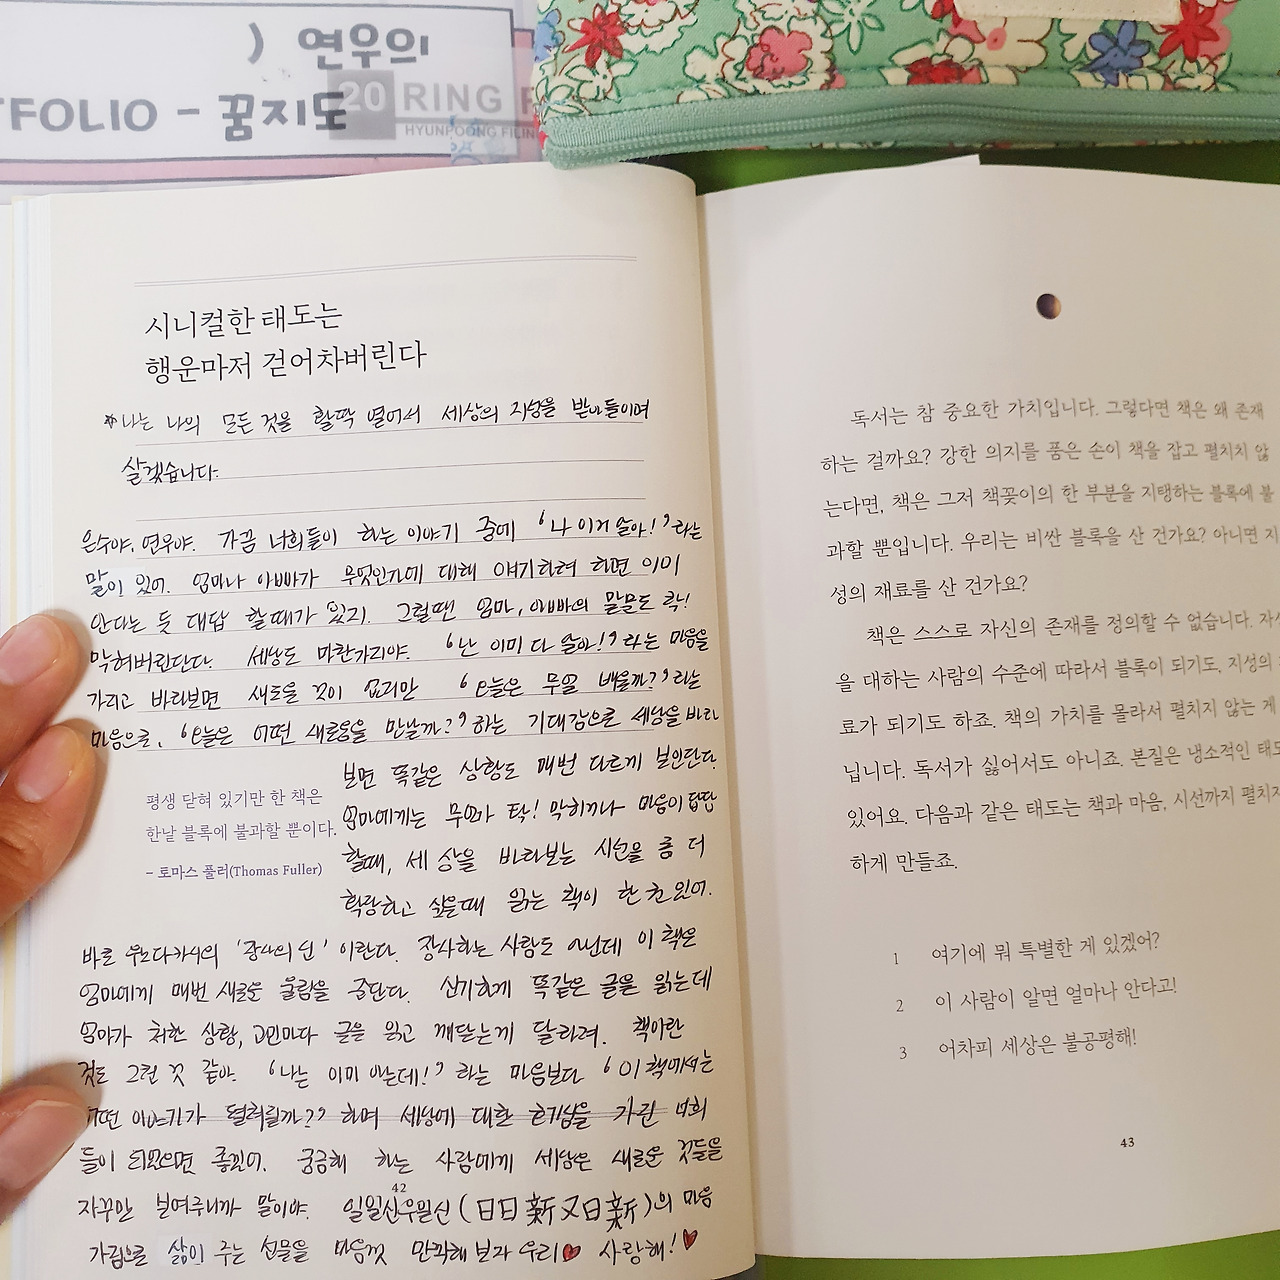 ) 연우의
TFOLIO - 꿈지도
20 RING
HYUNPOONG FILIN
시니컬한 태도는
행운마저 걷어차버린다
*나는 나의 모든 것을 활짝 열어서 세상의 지성을 받아들이며
살겠습니다.
은수야, 연우야. 가끔 너희들이 하는 이야기 중에 '나 이거 알아!'라는
말이 있어. 엄마나 아빠가 무엇인가에 대해 얘기하려 하면 이미
안다는 듯 대답 할때가 있지. 그럴땐 엄마, 아빠의 말문도 콱!
막혀버린단다. 세상도 마찬가지야. '난 이미 다 알아!'라는 마음을
가지고 바라보면 새로울 것이 없지만 '오늘은 무얼 배울까?'라는
마음으로, '오늘은 어떤 새로움을 만날까?'하는 기대감으로 세상을 바라
보면 똑같은 상황도 매번 다르게 보인단다.
엄마에게는 무언가 탁! 막히거나 마음이 답답
할때, 세상을 바라보는 시선을 좀 더
확장하고 싶을때 읽는 책이 한 권 있어.
평생 닫혀 있기만 한 책은
한낱 블록에 불과할 뿐이다.
– 토마스 풀러(Thomas Fuller)
바로 우노다카시의 '장사의 신' 이란다. 장사하는 사람도 아닌데 이 책은
엄마에게 매번 새로운 울림을 준단다. 신기하게 똑같은 글을 읽는데
엄마가 처한 상황, 고민마다 글을 읽고 깨닫는게 달라져. 책이란
것도 그런 것 같아. '나는 이미 아는데!' 라는 마음보다 '이 책에서는
어떤 이야기가 펼쳐질까?' 하며 세상에 대한 호기심을 가진 너희
들이 되었으면 좋겠어. 궁금해 하는 사람에게 세상은 새로운 것들을
자꾸만 보여주니까 말이야. 일일신우일신(日日新又日新)의 마음
가짐으로 삶이 주는 선물을 마음껏 만끽해보자 우리 사랑해!
42
독서는 참 중요한 가치입니다. 그렇다면 책은 왜 존재
하는 걸까요? 강한 의지를 품은 손이 책을 잡고 펼치지 않
는다면, 책은 그저 책꽂이의 한 부분을 지탱하는 블록에 불
과할 뿐입니다. 우리는 비싼 블록을 산 건가요? 아니면 지
성의 재료를 산 건가요?
책은 스스로 자신의 존재를 정의할 수 없습니다. 자신
을 대하는 사람의 수준에 따라서 블록이 되기도, 지성의
료가 되기도 하죠. 책의 가치를 몰라서 펼치지 않는 게
닙니다. 독서가 싫어서도 아니죠. 본질은 냉소적인 태도
있어요. 다음과 같은 태도는 책과 마음, 시선까지 펼치지
하게 만들죠.
1 여기에 뭐 특별한 게 있겠어?
2 이 사람이 알면 얼마나 안다고!
3 어차피 세상은 불공평해!
43